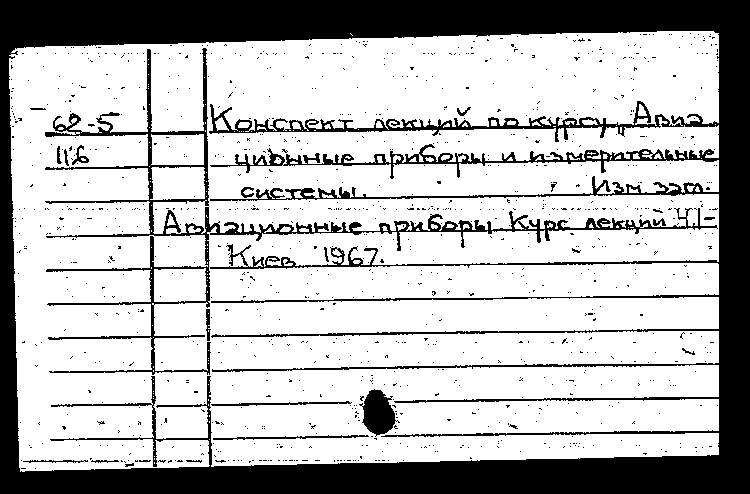 62-5 Конспект лекций по курсу „Авиа
116 ционные приборы и измерительные
системы. Изм. загл.
Авиационные приборы Курс лекций Ч.1-
Киев 1967.